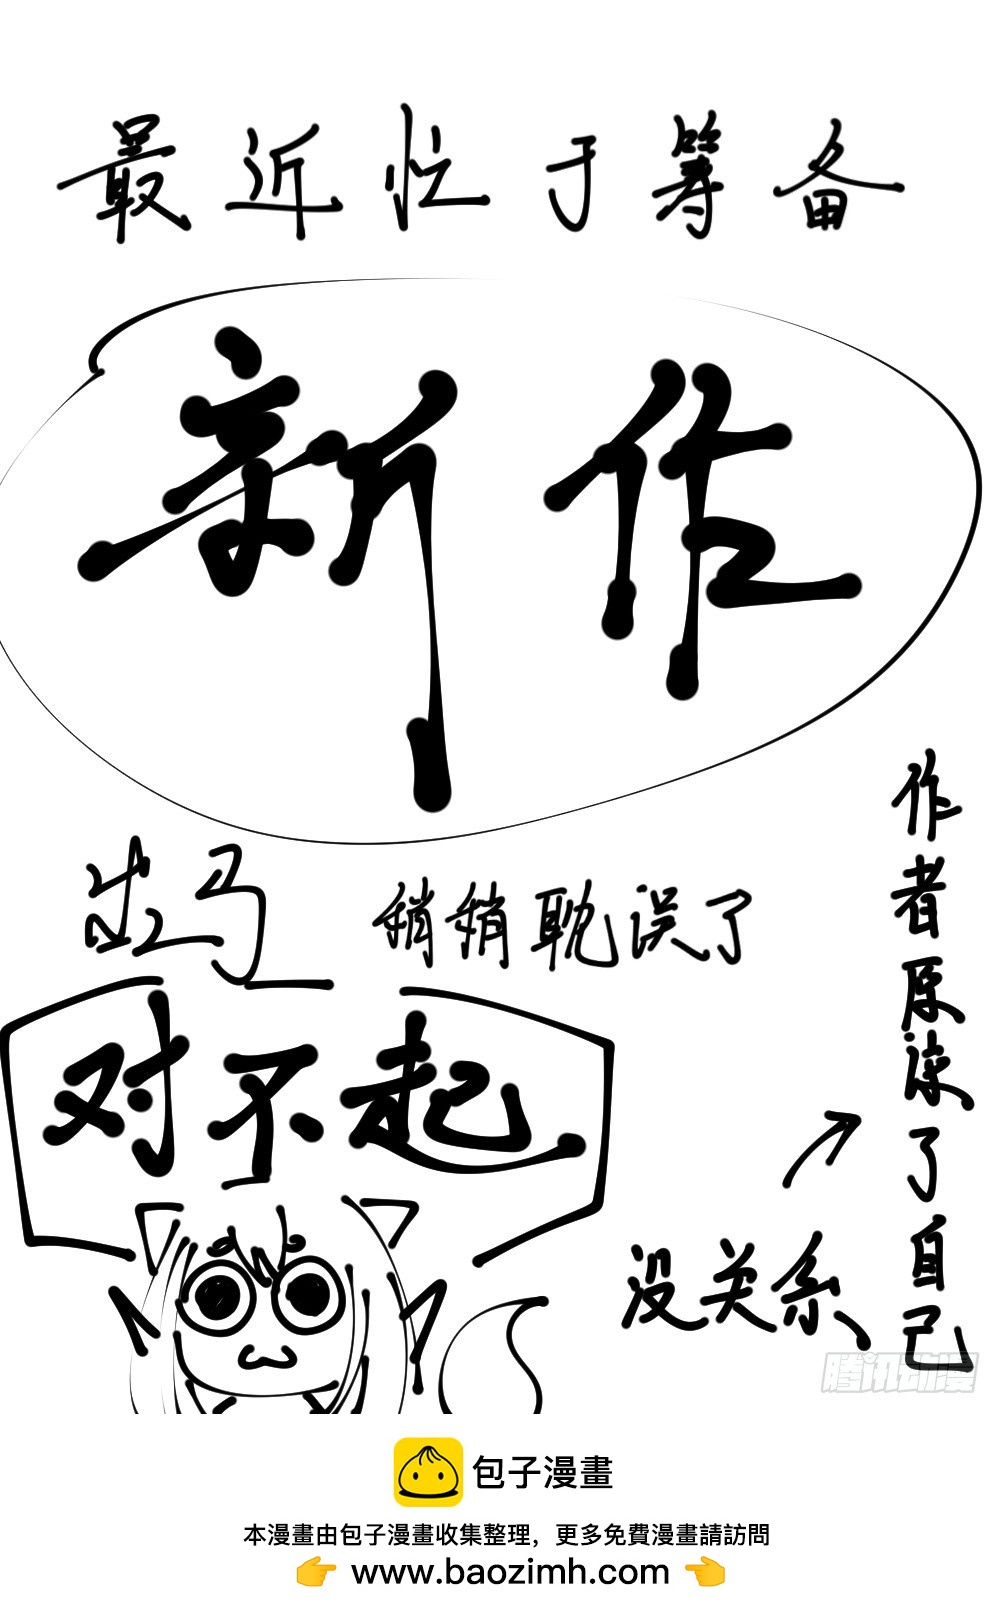 最近忙于筹备
新作
出马 稍稍耽误了
对不起
没关系
作者原谅了自己
腾讯动漫
包子漫畫
本漫畫由包子漫畫收集整理，更多免費漫畫請訪問
👉 www.baozimh.com 👈